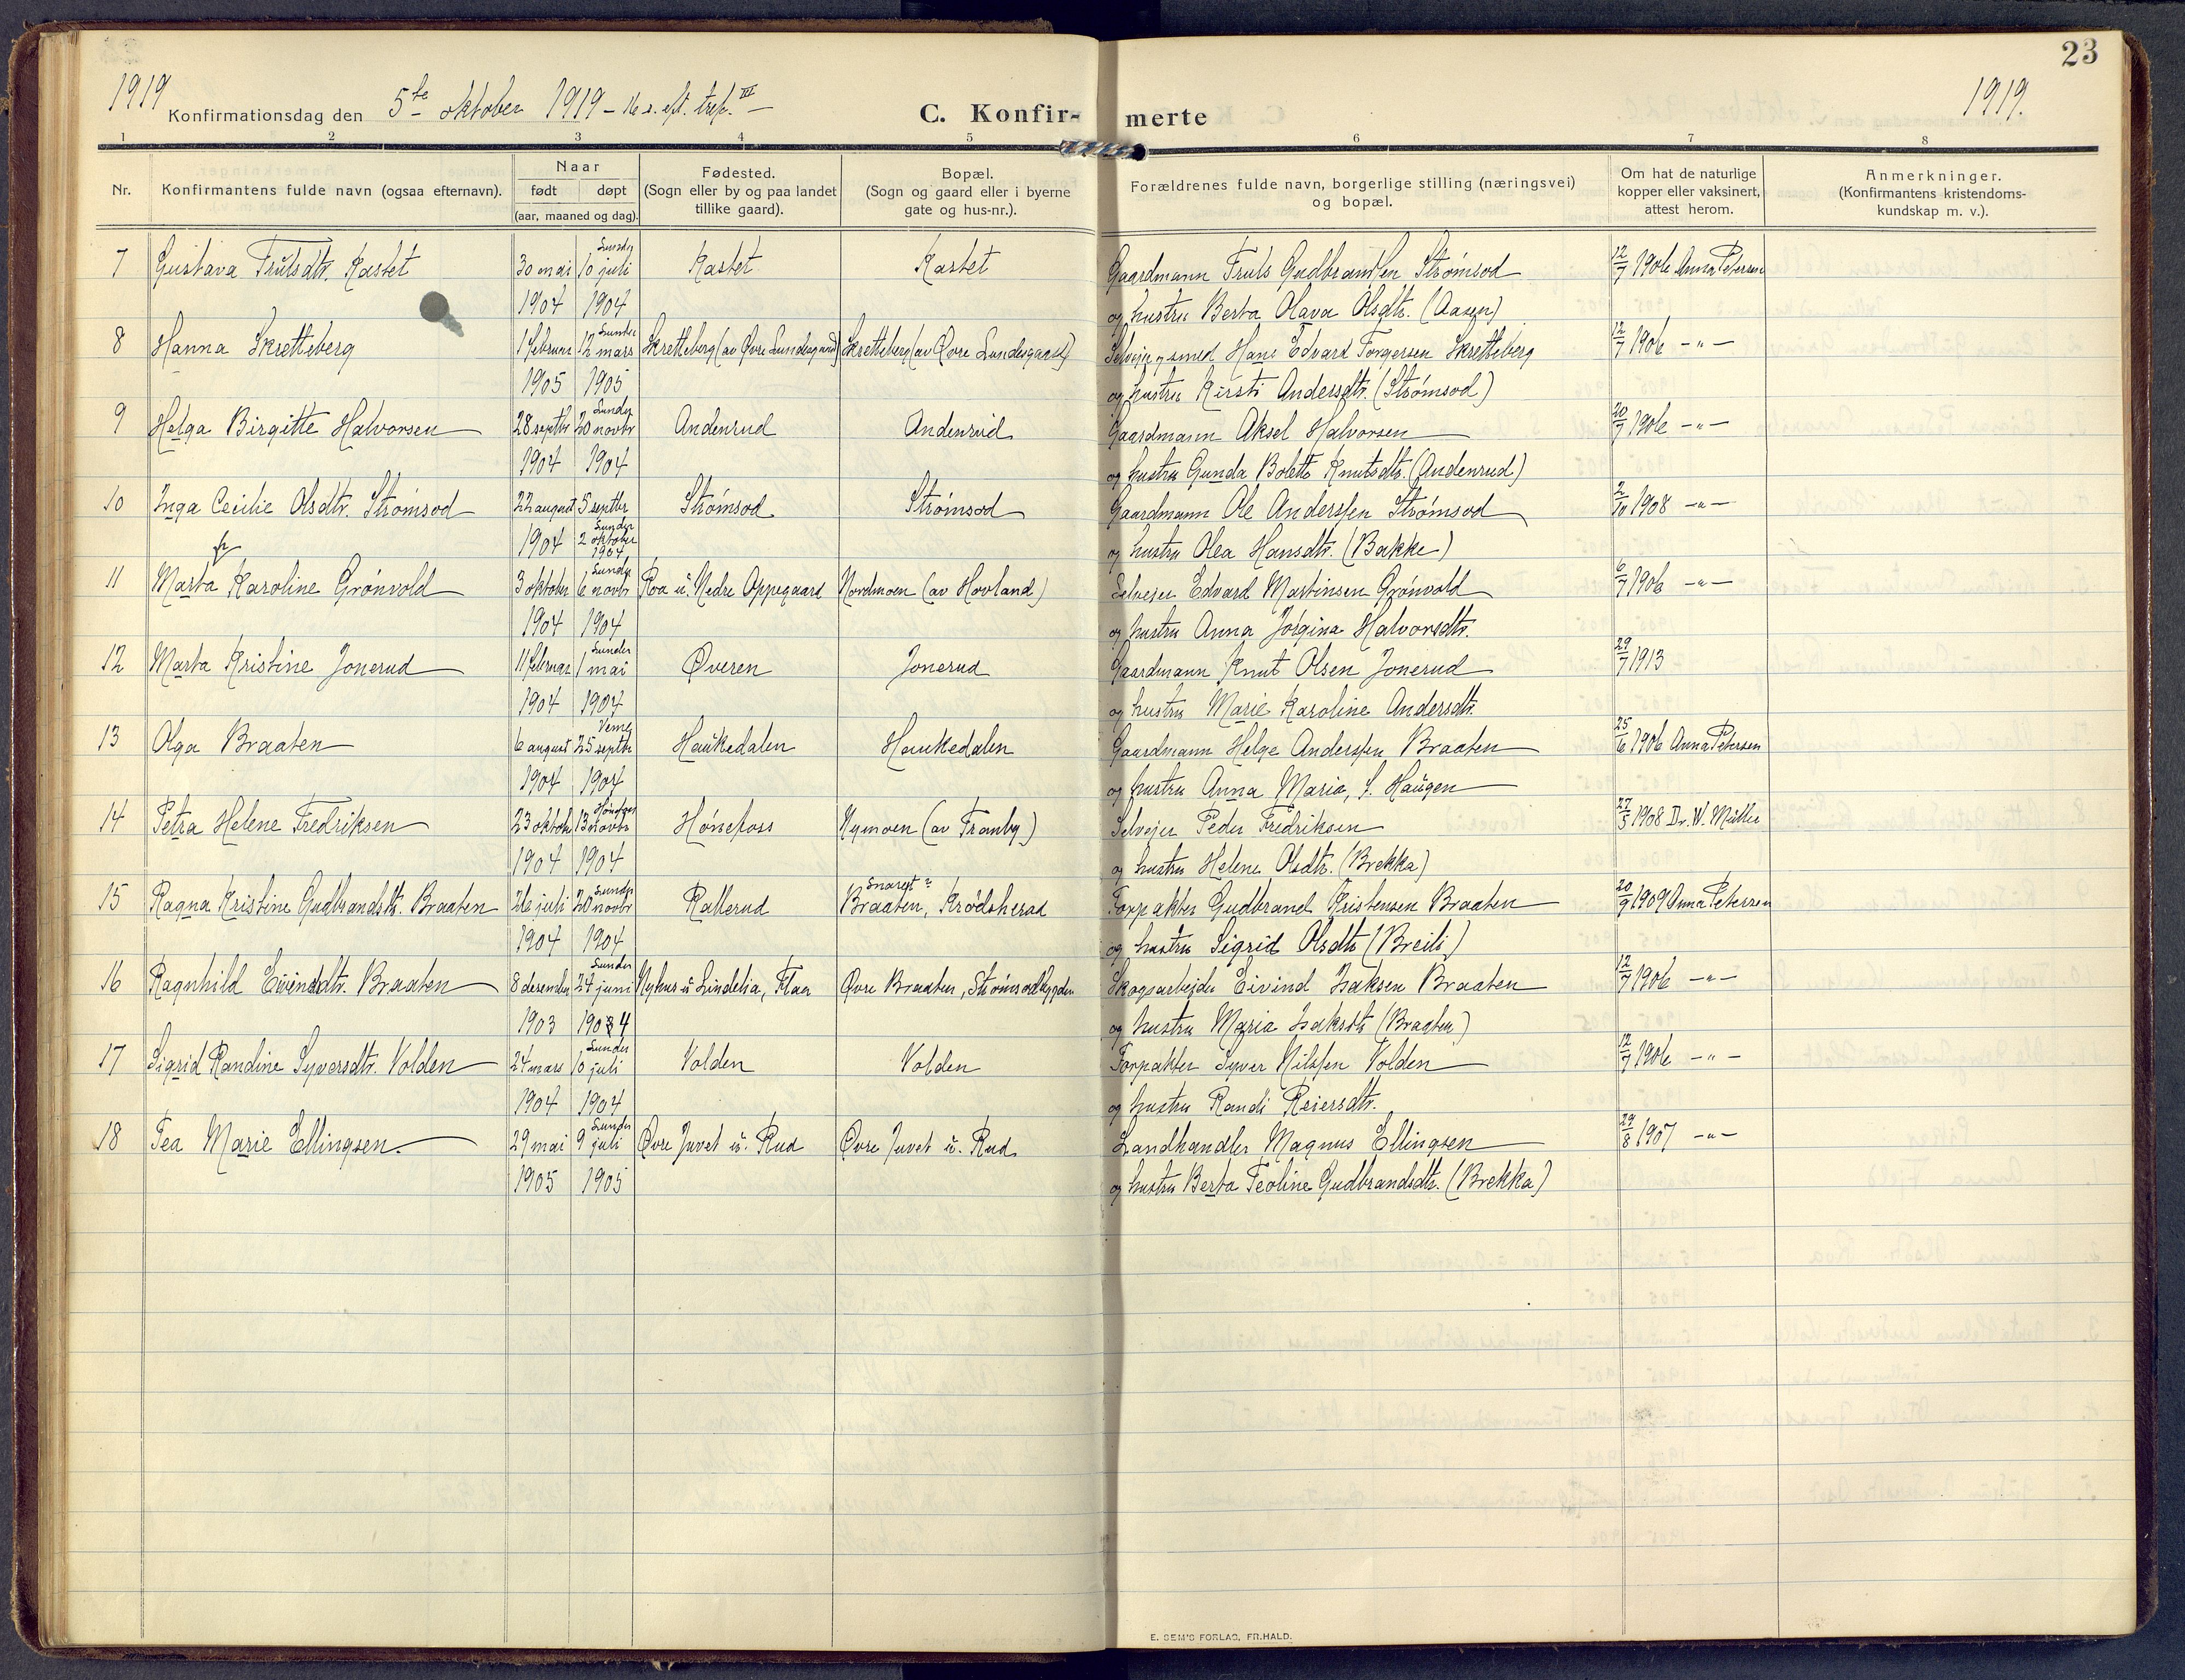 23
1919 1919.
Konfirmationsdag den 5te oktober 1919 – 16 s. eft. tref. III –
C. Konfir- merte
1 2 3 4 5 6 7 8
Nr. Konfirmantens fulde navn (ogsaa efternavn). Naar født døpt (aar, maaned og dag). Fødested. (Sogn eller by og paa landet tillike gaard). Bopæl. (Sogn og gaard eller i byerne gate og hus-nr.). Forældrenes fulde navn, borgerlige stilling (næringsvei) og bopæl. Om hat de naturlige kopper eller vaksinert, attest herom. Anmerkninger. (Konfirmantens kristendoms-kundskap m. v.).
7 Gustava Trulsdtr. Kastet 30 mai 10 juli Kastet Kastet Gaardmann Truls Gudbrandsen Strømsod 12/7 1906 Anna Petersen
1904 1904 og hustru Berta Olava Olsdtr. (Aasen)
8 Hanna Skretteberg 1 februar 12 mars Skretteberg (av Øvre Lundesgaard) Skretteberg (av Øvre Lundesgaard) Selveier og smed Hans Edvard Torgersen Skretteberg 12/7 1906 – " –
1905 1905 og hustru Kirsti Andersdtr. (Strømsod)
9 Helga Birgitte Halvorsen 28 septbr 20 novbr Andenrud Andenrud Gaardmann Aksel Halvorsen 20/7 1906 – " –
1904 1904 og hustru Gunda Bolette Knutsdtr. (Andenrud)
10 Inga Cecilie Olsdtr. Strømsod 22 august 5 septbr Strømsod Strømsod Gaardmann Ole Anderssen Strømsod 2/10 1908 – " –
1904 2 oktober 1904 og hustru Olea Hansdtr. (Bakke)
11 Marta Karoline Grønvold 3 oktober 6 novbr Roa u. Nedre Oppegaard Nordmoen (av Hovland) Selveier Edvard Martinsen Grønvold 6/7 1906 – " –
1904 1904 og hustru Anna Jørgina Halvorsdtr.
12 Marta Kristine Jonerud 11 februar 1 mai Øveren Jonerud Gaardmann Knut Olsen Jonerud 29/7 1913
1904 1904 og hustru Marie Karoline Andersdtr.
13 Olga Braaten 6 august 25 septbr Haukedalen Haukedalen Gaardmann Helge Anderssen Braaten 25/6 1906 Anna Petersen
1904 1904 og hustru Anna Maria, f. Haugen
14 Petra Helene Fredriksen 23 oktob 13 novbr Hønefoss Nymoen (av Tranby) Selveier Peder Fredriksen 27/5 1908 Dr. W. Müller
1904 1904 og hustru Helene Olsdtr. (Brekka)
15 Ragna Kristine Gudbrandsdtr. Braaten 26 juli 20 novbr Rallerud Braaten, Krødsherad Forpakter Gudbrand Kristensen Braaten 20/9 1909 Anna Petersen
1904 1904 og hustru Sigrid Olsdtr (Breili)
16 Ragnhild Eivindsdtr. Braaten 8 desember 24 juni Nyhus u Lindelia, Flaa Øvre Braaten, Strømsodbygden Skogsarbeider Eivind Isaksen Braaten 12/7 1906 – " –
1903 1904 og hustru Maria Isaksdtr (Braaten)
17 Sigrid Randine Syversdtr. Volden 24 mars 10 juli Volden Volden Forpakter Syver Nilssen Volden 12/7 1906 – " –
1904 1904 og hustru Randi Reiersdtr.
18 Tea Marie Ellingsen. 29 mai 9 juli Øvre Juvet u. Rud Øvre Juvet u. Rud Landhandler Magnus Ellingsen 29/8 1907 – " –
1905 1905 og hustru Berta Teoline Gudbrandsdtr. (Brekka)
E. SEM'S FORLAG, FR.HALD.